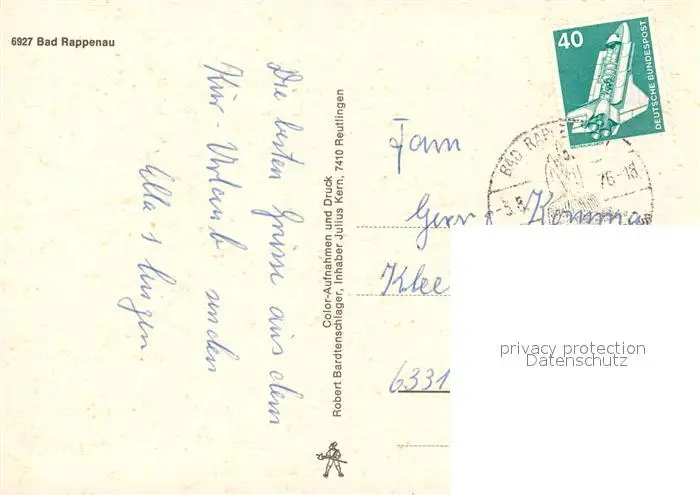 6927 Bad Rappenau
Die besten Grüsse aus dem
Kur-Urlaub senden
Color-Aufnahmen und Druck
Robert Bardtenschlager, Inhaber Julius Kern, 7410 Reutlingen
40
DEUTSCHE BUNDESPOST
BAD RAPP
76-18
Fam
Klee
6331
privacy protection
Datenschutz